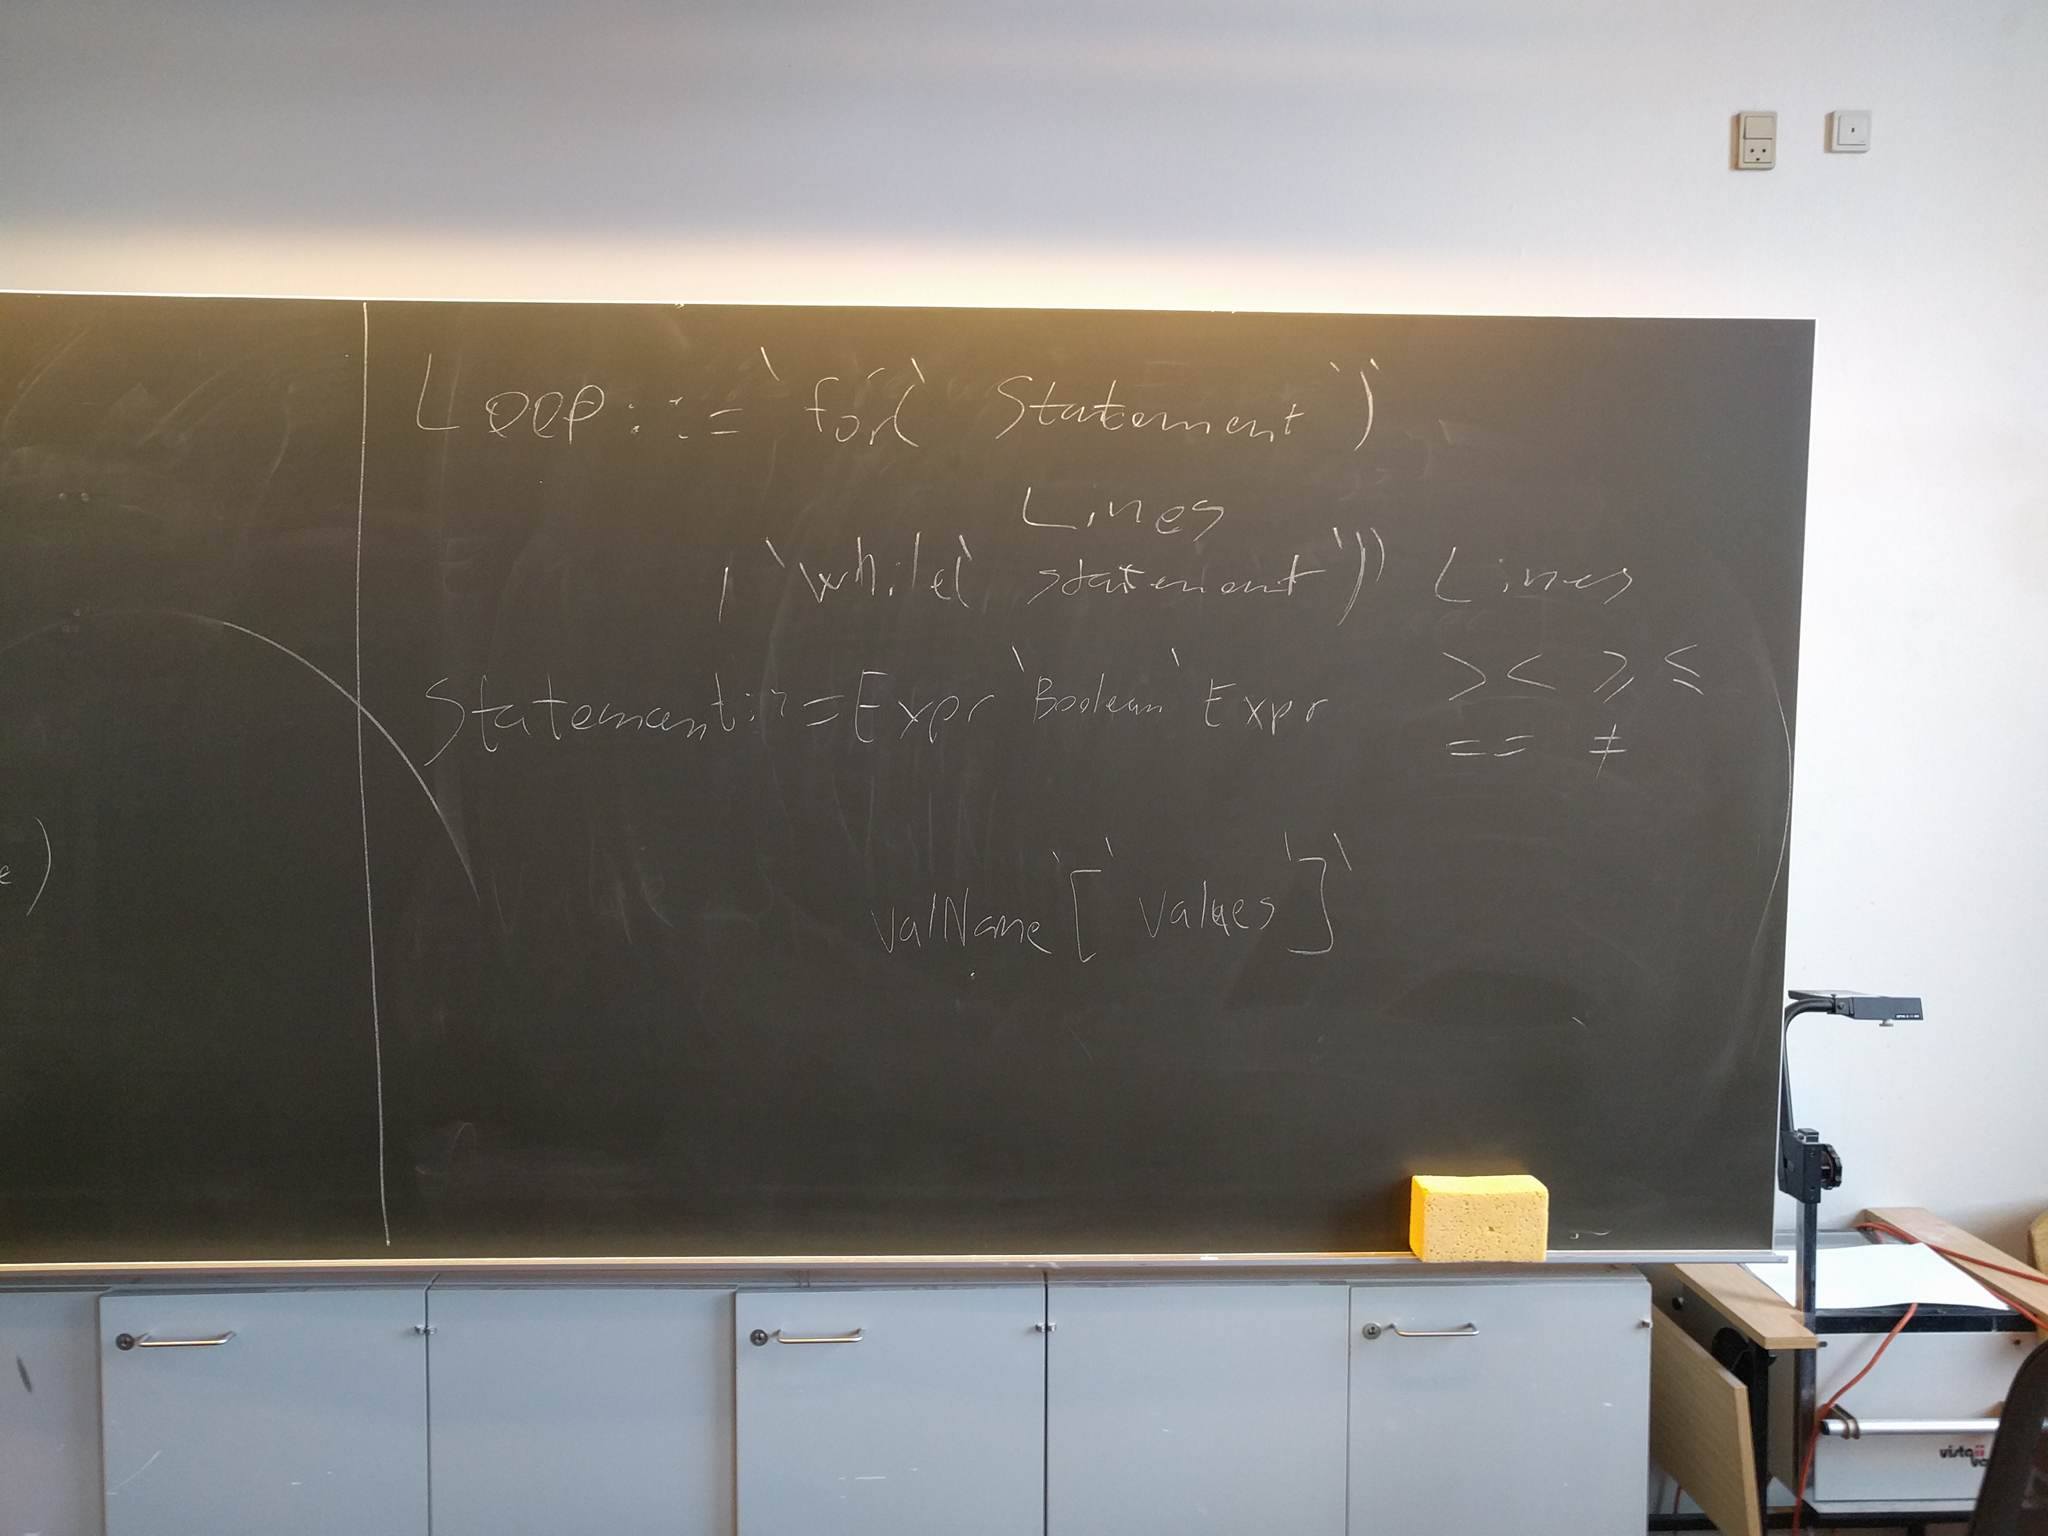 Loop ::= `for(` Statement `)`
Lines
| `while(` statement `)` Lines
Statement ::= Expr `Boolean` Expr
> < ≥ ≤
== ≠
valName `[` values `]`
e)
vista